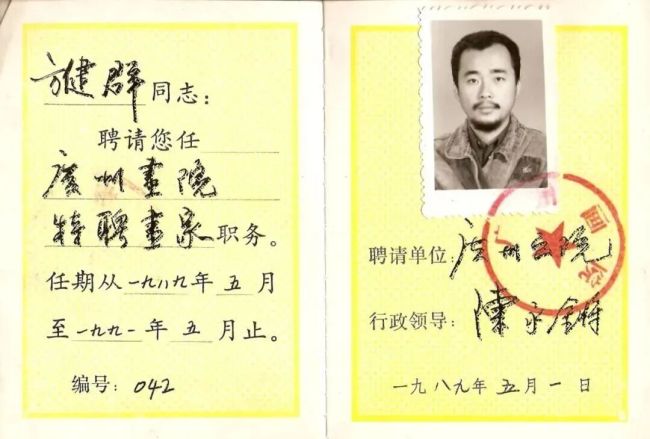 方健群同志：
聘请您任
廣州画院
特聘画家职务。
任期从一九八九年五月
至一九九一年五月止。
编号：042
广州画院
聘请单位：廣州画院
行政领导：陳永锵
一九八九年五月一日